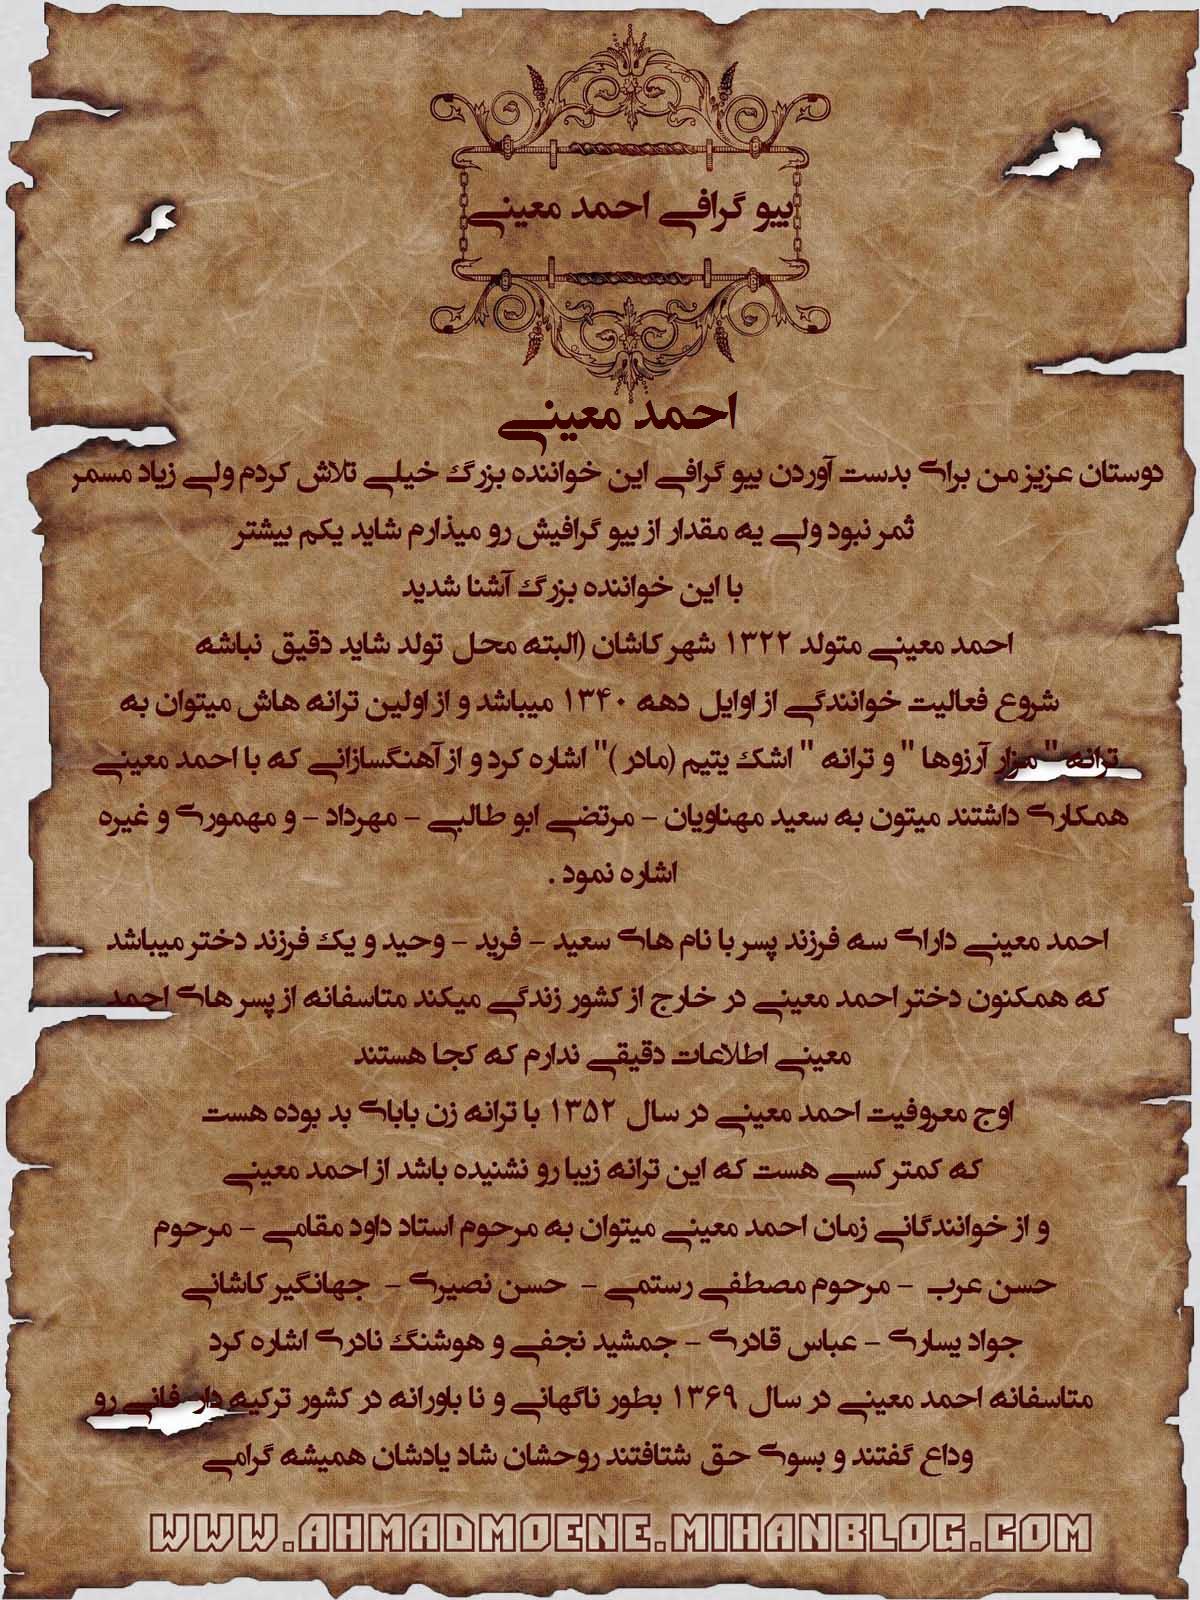 بیو گرافی احمد معینی
احمد معینی
دوستان عزیز من برای بدست آوردن بیو گرافی این خواننده بزرگ خیلی تلاش کردم ولی زیاد مسمر
ثمر نبود ولی یه مقدار از بیو گرافیش رو میذارم شاید یکم بیشتر
با این خواننده بزرگ آشنا شدید
احمد معینی متولد ۱۳۲۲ شهر کاشان (البته محل تولد شاید دقیق نباشه
شروع فعالیت خوانندگی از اوایل دهه ۱۳۴۰ میباشد و از اولین ترانه هاش میتوان به
ترانه " مزار آرزوها " و ترانه " اشک یتیم (مادر )" اشاره کرد و از آهنگسازانی که با احمد معینی
همکاری داشتند میتون به سعید مهناویان - مرتضی ابو طالبی - مهرداد - و مهموری و غیره
اشاره نمود .
احمد معینی دارای سه فرزند پسر با نام های سعید - فرید - وحید و یک فرزند دختر میباشد
که همکنون دختر احمد معینی در خارج از کشور زندگی میکند متاسفانه از پسر های احمد
معینی اطلاعات دقیقی ندارم که کجا هستند
اوج معروفیت احمد معینی در سال ۱۳۵۲ با ترانه زن بابای بد بوده هست
که کمتر کسی هست که این ترانه زیبا رو نشنیده باشد از احمد معینی
و از خوانندگانی زمان احمد معینی میتوان به مرحوم استاد داود مقامی - مرحوم
حسن عرب - مرحوم مصطفی رستمی - حسن نصیری - جهانگیر کاشانی
جواد یساری - عباس قادری - جمشید نجفی و هوشنگ نادری اشاره کرد
متاسفانه احمد معینی در سال ۱۳۶۹ بطور ناگهانی و نا باورانه در کشور ترکیه دار فانی رو
وداع گفتند و بسوی حق شتافتند روحشان شاد یادشان همیشه گرامی
WWW.AHMADMOENE.MIHANBLOG.COM